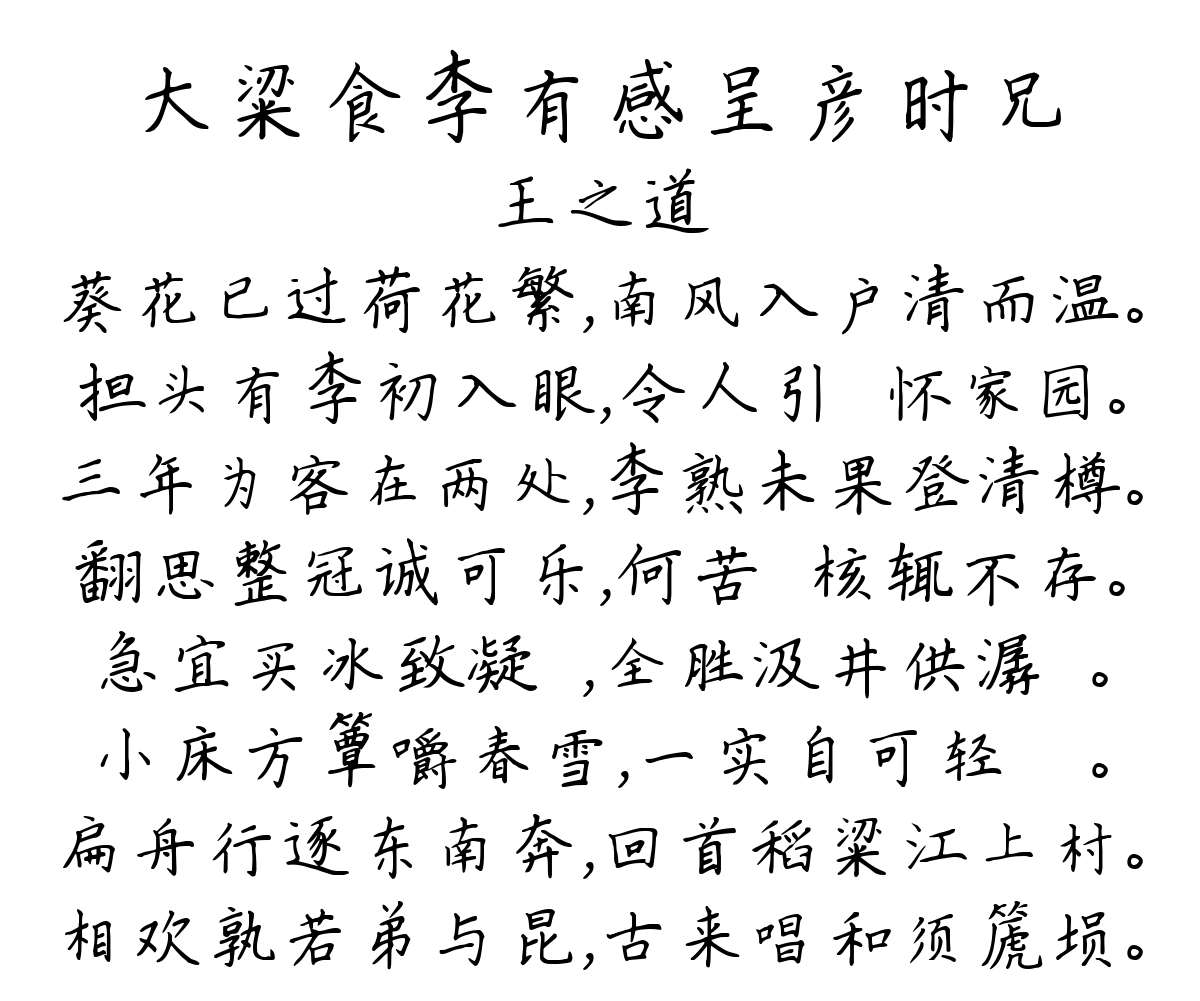 大粱食李有感呈彦时兄
王之道
葵花已过荷花繁,南风入户清而温。
担头有李初入眼,令人引 怀家园。
三年为客在两处,李熟未果登清樽。
翻思整冠诚可乐,何苦 核辄不存。
急宜买冰致凝 ,全胜汲井供潺 。
小床方簟嚼春雪,一实自可轻 。
扁舟行逐东南奔,回首稻粱江上村。
相欢孰若弟与昆,古来唱和须篪埙。